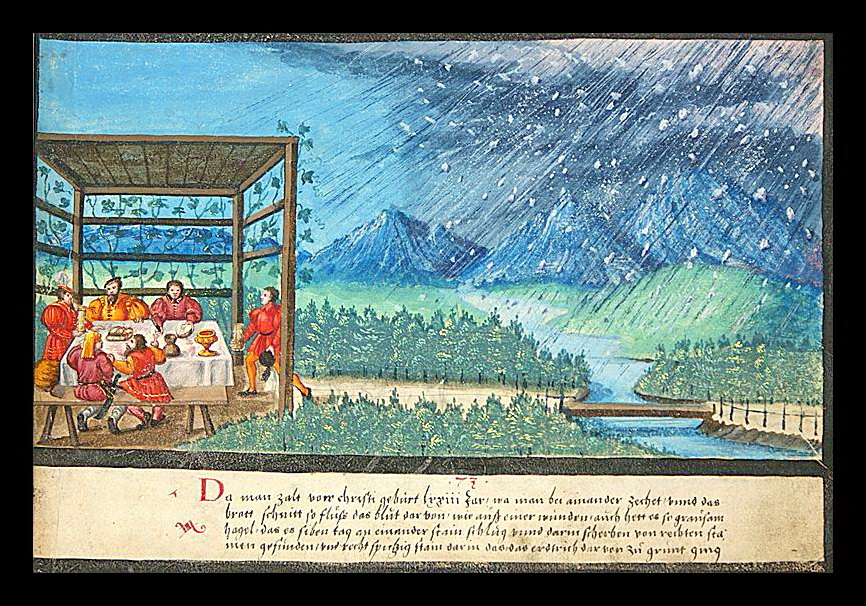 73.
Da man zalt vorr christi gebürt lxxiii Jar, wa man bei ainander zechet, vnnd das
brott schnitt so fluſs das blüt dar von, wie auſs einer wünden, auch hett es so graüsam
hagel, das es siben tag an einander stain schlüg vnnd darin scherben von rechten stai,
nen gefünden, vnd recht spitzig stain darin das das erdtrich dar von zü grünt ging